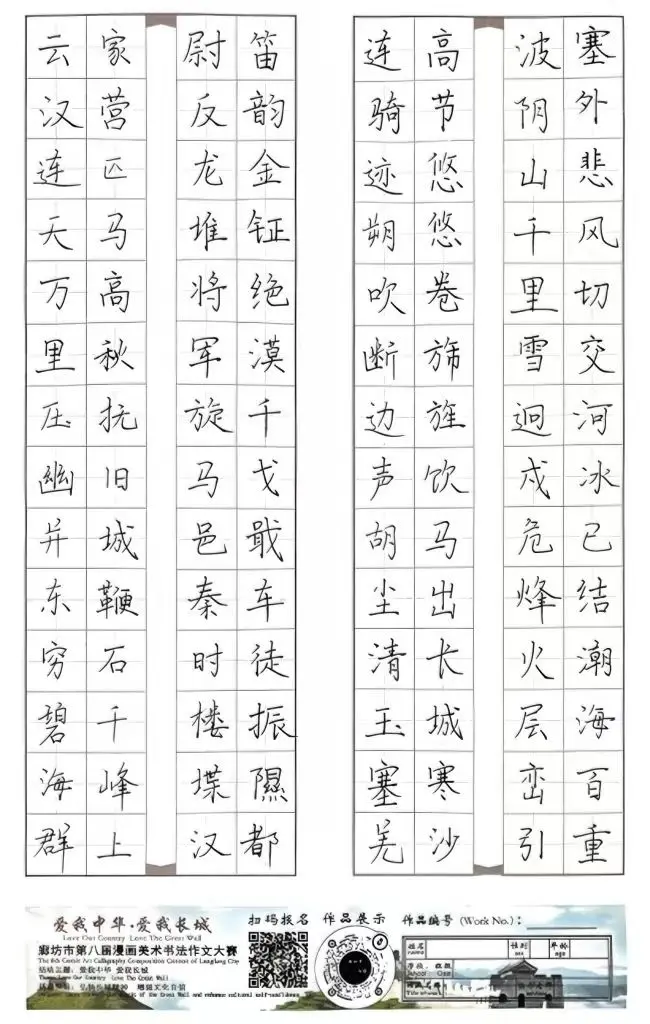 塞外悲风切交河冰已结潮海百重
波阴山千里雪迥戍危烽火层峦引
高节悠悠卷旆旌饮马出长城寒沙
连骑迹朔吹断边声胡尘清玉塞羌
笛韵金钲绝漠千戈戢车徒振隰都
尉反龙堆将军旋马邑秦时楼堞汉
家营匹马高秋抚旧城鞭石千峰上
云汉连天万里压幽并东穷碧海群
爱我中华·爱我长城
Love Our Country Love The Great Wall
廊坊市第八届漫画美术书法作文大赛
扫码报名
作品展示
作品编号 (Work No.)：
姓名
性别
年龄